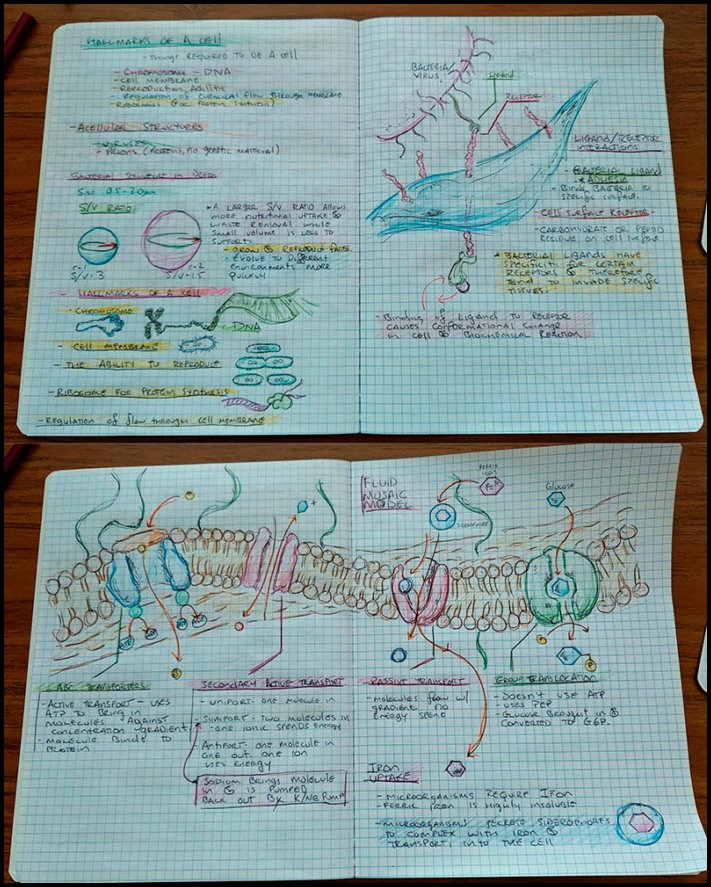 HALLMARKS OF A CELL
- Things REQUIRED TO BE A CELL
- CHROMOSOME - DNA
- CELL MEMBRANE
- REPRODUCTION ABILITY
- REGULATION OF CHEMICAL FLOW THROUGH MEMBRANE
- RIBOSOMES (FOR PROTEIN SYNTHESIS)
- ACELLULAR STRUCTURES
- VIRUSES
- PRIONS (PROTEINS, NO GENETIC MATERIAL)
BACTERIAL STRUCTURE IN DEPTH
SIZE 0.5-3.0μm
S/V RATIO:
r=1
S/V=3
r=2
S/V=1.5
* A LARGER S/V RATIO ALLOWS
MORE NUTRITIONAL UPTAKE &
WASTE REMOVAL WHILE
SMALL VOLUME IS LESS TO
SUPPORT.
- GROW & REPRODUCE FASTER
- EVOLVE TO DIFFERENT
ENVIRONMENTS MORE
QUICKLY
- HALLMARKS OF A CELL
- CHROMOSOME
DNA
- CELL MEMBRANE
- THE ABILITY TO REPRODUCE
- RIBOSOME FOR PROTEIN SYNTHESIS
- REGULATION OF FLOW THROUGH CELL MEMBRANE
BACTERIA/
VIRUS
Ligand
RECEPTOR
LIGAND/RECEPTOR
INTERACTIONS
- BACTERIAL LIGAND
* ADHESIN
- BINDS BACTERIA TO
SPECIFIC SURFACE.
- CELL SURFACE RECEPTOR
- CARBOHYDRATE OR PEPTID
RESIDUE ON CELL SURFACE
* BACTERIAL LIGANDS HAVE
SPECIFICITY FOR CERTAIN
RECEPTORS & THEREFORE
TEND TO INVADE SPECIFIC
TISSUES.
- BINDING OF LIGAND TO RECEPTOR
CAUSES CONFORMATIONAL CHANGE
IN CELL & BIOCHEMICAL REACTION
FLUID
MOSAIC
MODEL
FERRIC
Fe
SIDEROPHORE
Glucose
ABC TRANSPORTERS
- ACTIVE TRANSPORT - USES
ATP TO BRING IN
MOLECULES AGAINST
CONCENTRATION GRADIENT
- MOLECULE BINDS TO
PROTEIN
SECONDARY ACTIVE TRANSPORT
- UNIPORT - ONE MOLECULE IN
- SYMPORT - TWO MOLECULES IN
- ONE IONIC SPENDS ENERGY
ANTIPORT - ONE MOLECULE IN
ONE OUT. ONE ION
USES ENERGY
SODIUM BRINGS MOLECULE
IN & IS PUMPED
BACK OUT BY K/Na PUMP
PASSIVE TRANSPORT
- MOLECULES FLOW W/
GRADIENT NO
ENERGY SPENT
GROUP TRANSLOCATION
- DOESN'T USE ATP
- USES PEP
- GLUCOSE BROUGHT IN &
CONVERTED TO G6P.
IRON
UPTAKE
- MICROORGANISMS REQUIRE IRON
- FERRIC IRON IS HIGHLY INSOLUBLE
- MICROORGANISMS SECRETE SIDEROPHORES
TO COMPLEX WITH IRON &
TRANSPORT INTO THE CELL